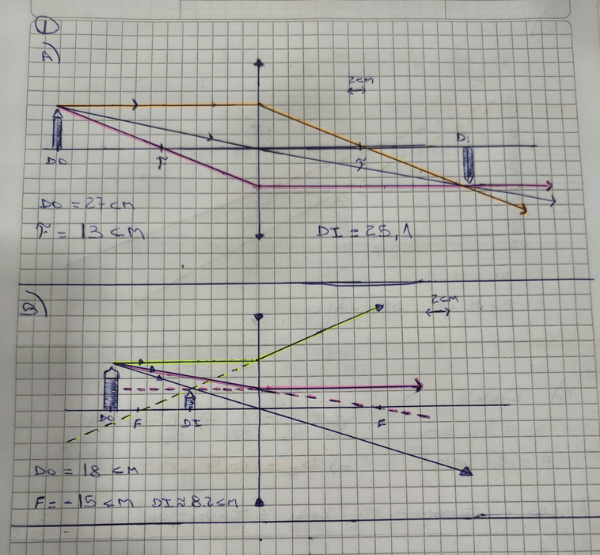 1)
A)
2cm
Di
DO
F
F
DO = 27cm
F = 13 cm
DI = 25,1
B)
2cm
DO
F
DI
F
DO = 18 cm
F = -15 cm DI ≈ 8.2 cm